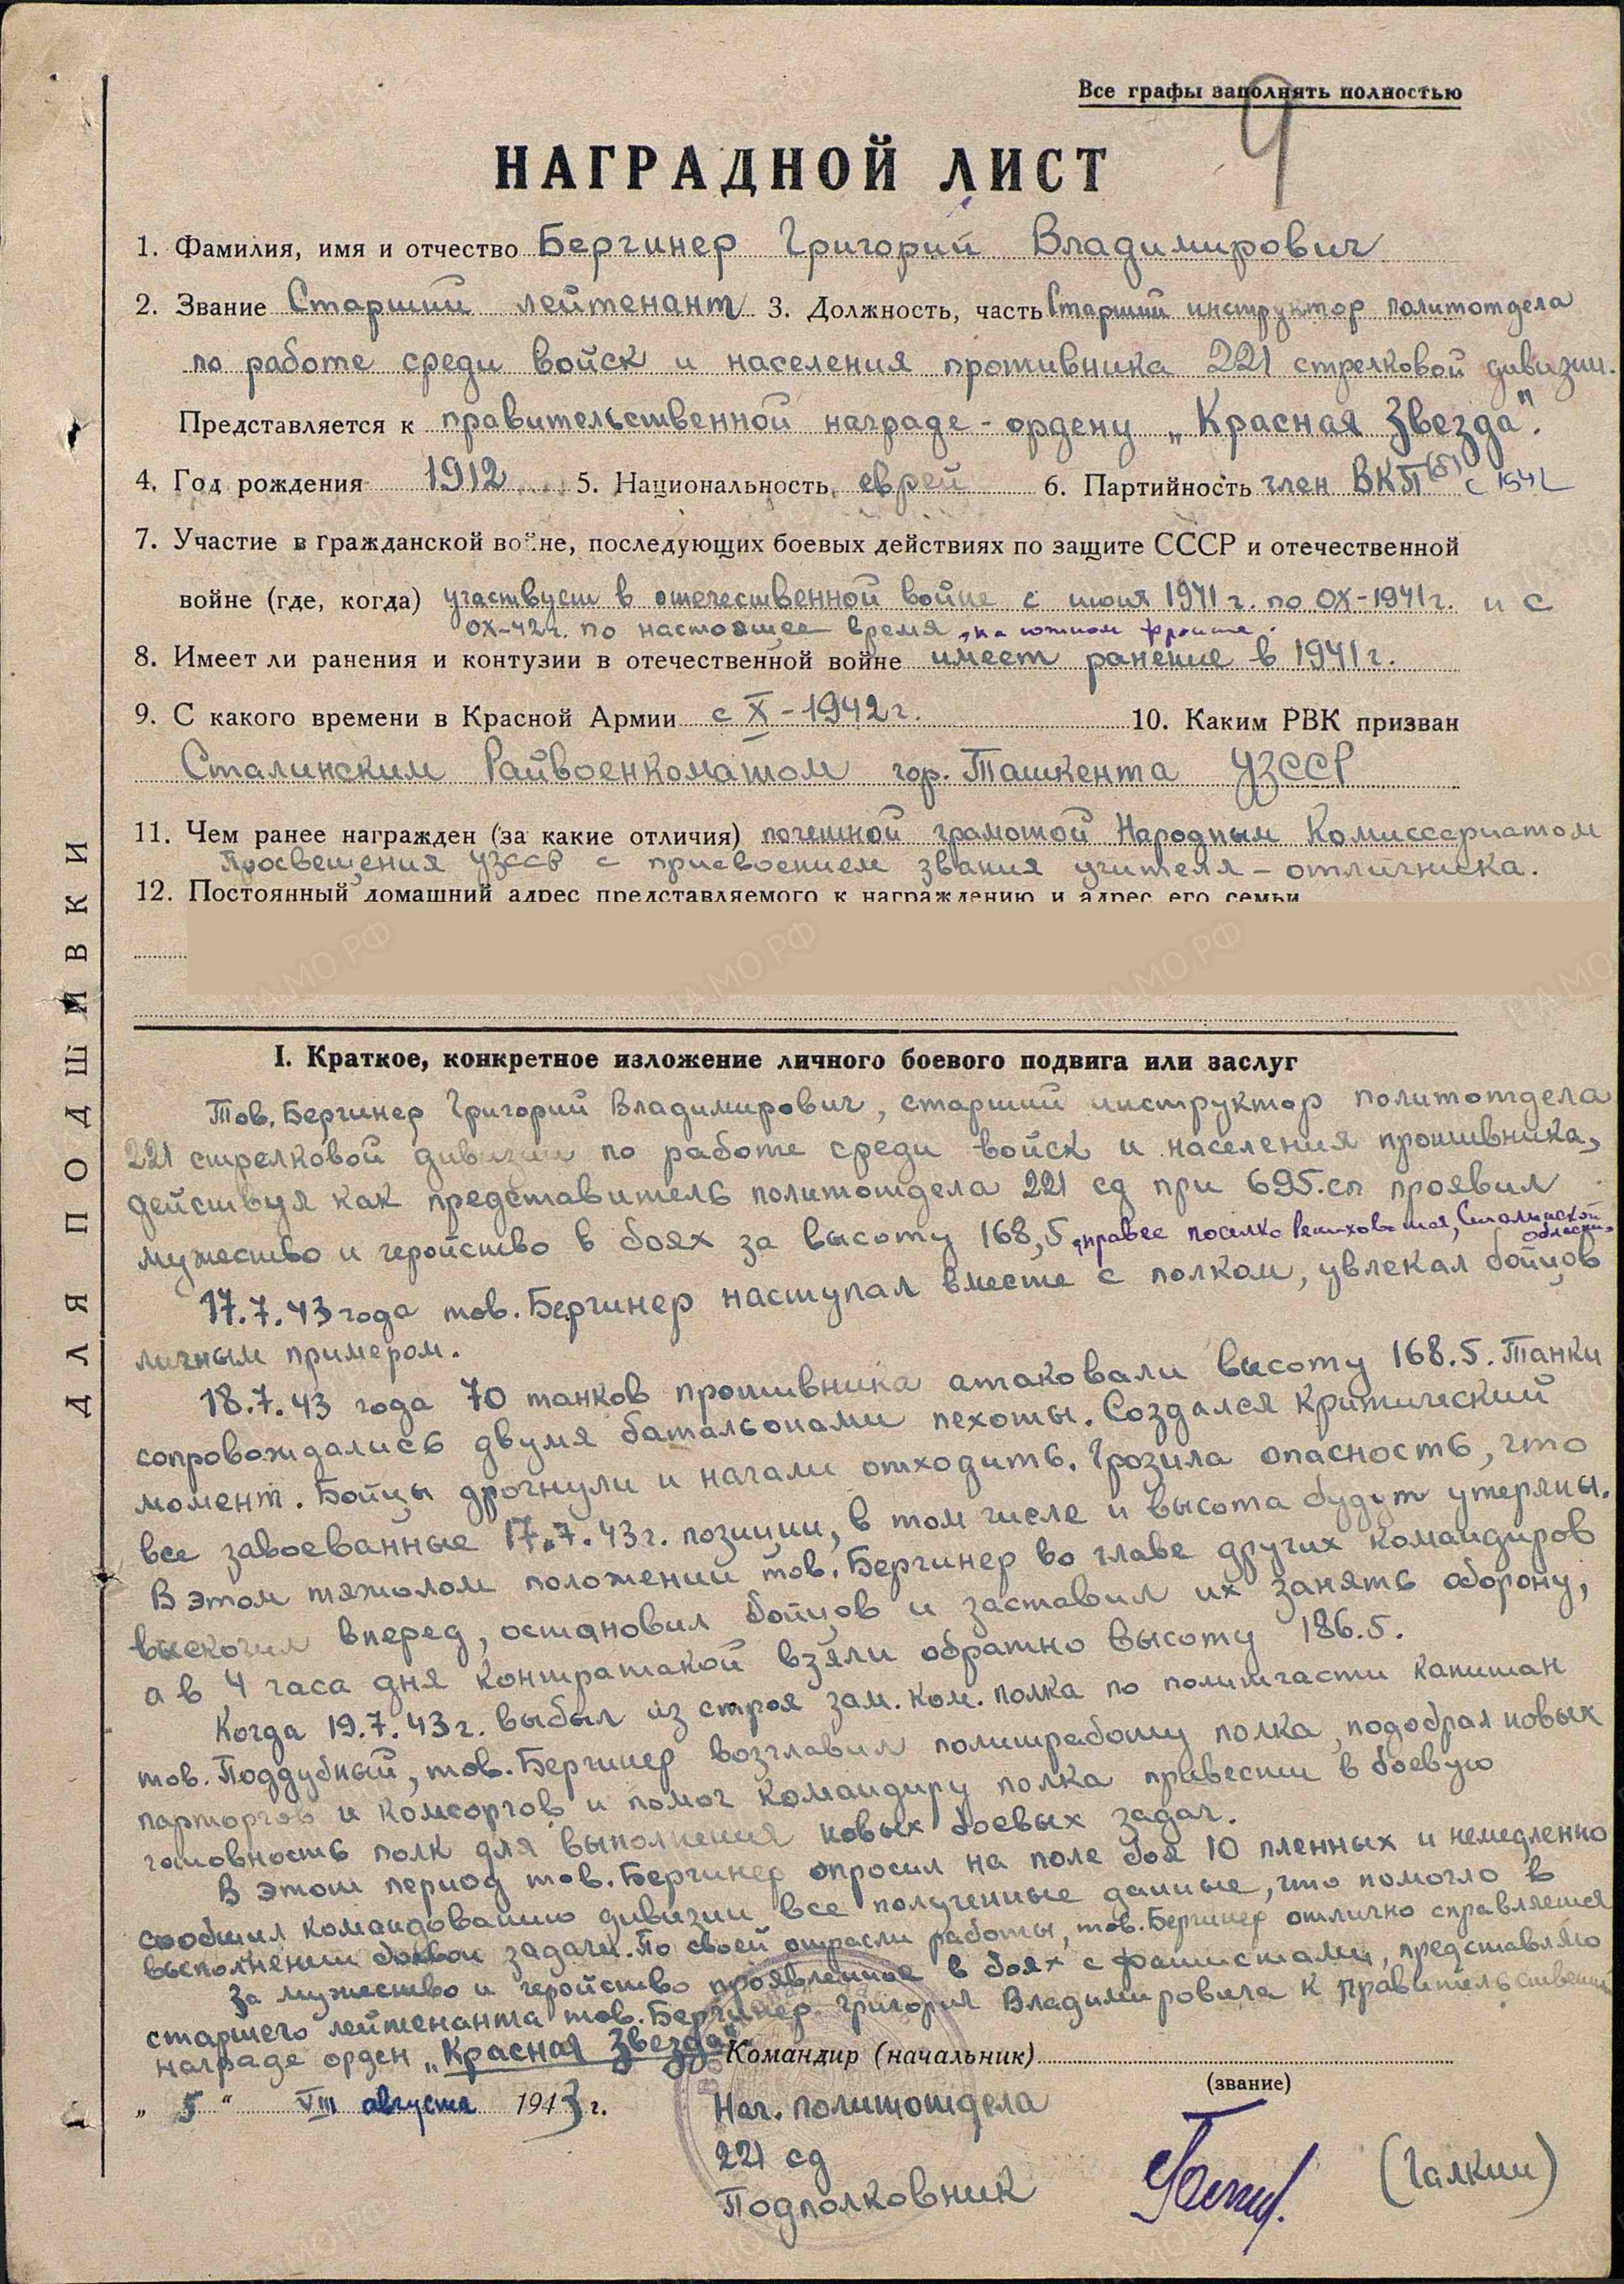 Все графы заполнять полностью
4
НАГРАДНОЙ ЛИСТ
1. Фамилия, имя и отчество Бергинер Григорий Владимирович
2. Звание Старший лейтенант 3. Должность, часть Старший инструктор политотдела
по работе среди войск и населения противника 221 стрелковой дивизии.
Представляется к правительственной награде - ордену „Красная Звезда".
4. Год рождения 1912 5. Национальность еврей 6. Партийность член ВКП(б) с 1942
7. Участие в гражданской войне, последующих боевых действиях по защите СССР и отечественной
войне (где, когда) участвует в отечественной войне с июня 1941 г. по 0X-1941г. и с
0X-42г. по настоящее время, на южном фронте.
8. Имеет ли ранения и контузии в отечественной войне имеет ранение в 1941 г.
9. С какого времени в Красной Армии с X - 1942 г. 10. Каким РВК призван
Сталинским Райвоенкоматом гор. Ташкента УзССР
11. Чем ранее награжден (за какие отличия) почетной грамотой Народным Комиссариатом
Просвещения УзССР с присвоением звания учителя - отличника.
12. Постоянный домашний адрес представляемого к награждению и адрес его семьи
I. Краткое, конкретное изложение личного боевого подвига или заслуг
Тов. Бергинер Григорий Владимирович, старший инструктор политотдела
221 стрелковой дивизии по работе среди войск и населения противника,
действуя как представитель политотдела 221 сд при 695.сп проявил
мужество и геройство в боях за высоту 168,5, правее поселка Сталинской области.
17.7.43 года тов. Бергинер наступал вместе с полком, увлекал бойцов
личным примером.
18.7.43 года 70 танков противника атаковали высоту 168.5. Танки
сопровождались двумя батальонами пехоты. Создался критический
момент. Бойцы дрогнули и начали отходить. Грозила опасность, что
все завоеванные 17.7.43г. позиции, в том числе и высота будут утеряны.
В этом тяжолом положении тов. Бергинер во главе других командиров
выскочил вперед, остановил бойцов и заставил их занять оборону,
а в 4 часа дня контратакой взяли обратно высоту 186.5.
Когда 19.7.43г. выбыл из строя зам. ком. полка по политчасти капитан
тов. Поддубный, тов. Бергинер возглавил политработу полка, подобрал новых
парторгов и комсоргов и помог командиру полка привести в боевую
готовность полк для выполнения новых боевых задач.
В этот период тов. Бергинер опросил на поле боя 10 пленных и немедленно
сообщил командованию дивизии все полученные данные, что помогло в
выполнении боевой задачи. По своей отрасли работы, тов. Бергинер отлично справляется
За мужество и геройство проявленное в боях с фашистами, представляю
старшего лейтенанта тов. Бергинер Григория Владимировича к правительственной
награде орден „Красная Звезда"
Командир (начальник)
(звание)
„ 5 " VIII августа 1943 г.
Нач. политотдела
221 сд
Подполковник (Галкин)
ДЛЯ ПОДШИВКИ
ЦАМО РФ